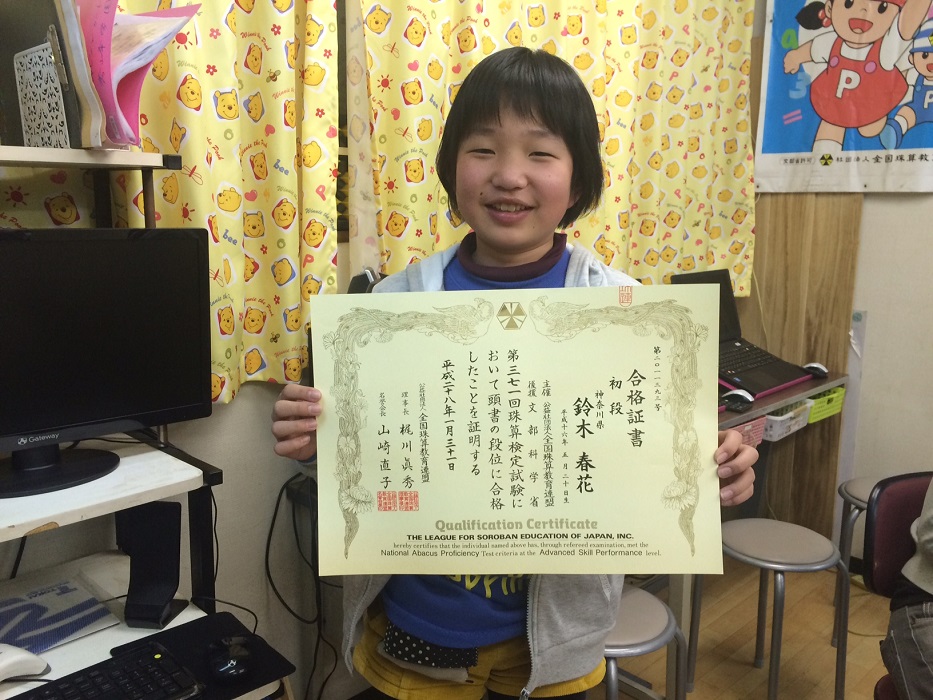 第二〇一一三九三号
合格証書
初段
神奈川県
鈴木 春花
平成十六年五月二十日生
主催 公益社団法人全国珠算教育連盟
後援 文部科学省
第三七一回珠算検定試験に
おいて頭書の段位に合格
したことを証明する
平成二十八年一月三十一日
公益社団法人全国珠算教育連盟
理事長 梶川眞秀
名誉会長 山崎直子
Qualification Certificate
THE LEAGUE FOR SOROBAN EDUCATION OF JAPAN, INC.
hereby certifies that the individual named above has, through refereed examination, met the
National Abacus Proficiency Test criteria at the Advanced Skill Performance level.
Gateway
P
文部省許可 社団法人 全国珠算教
Winnie the Pooh
bee